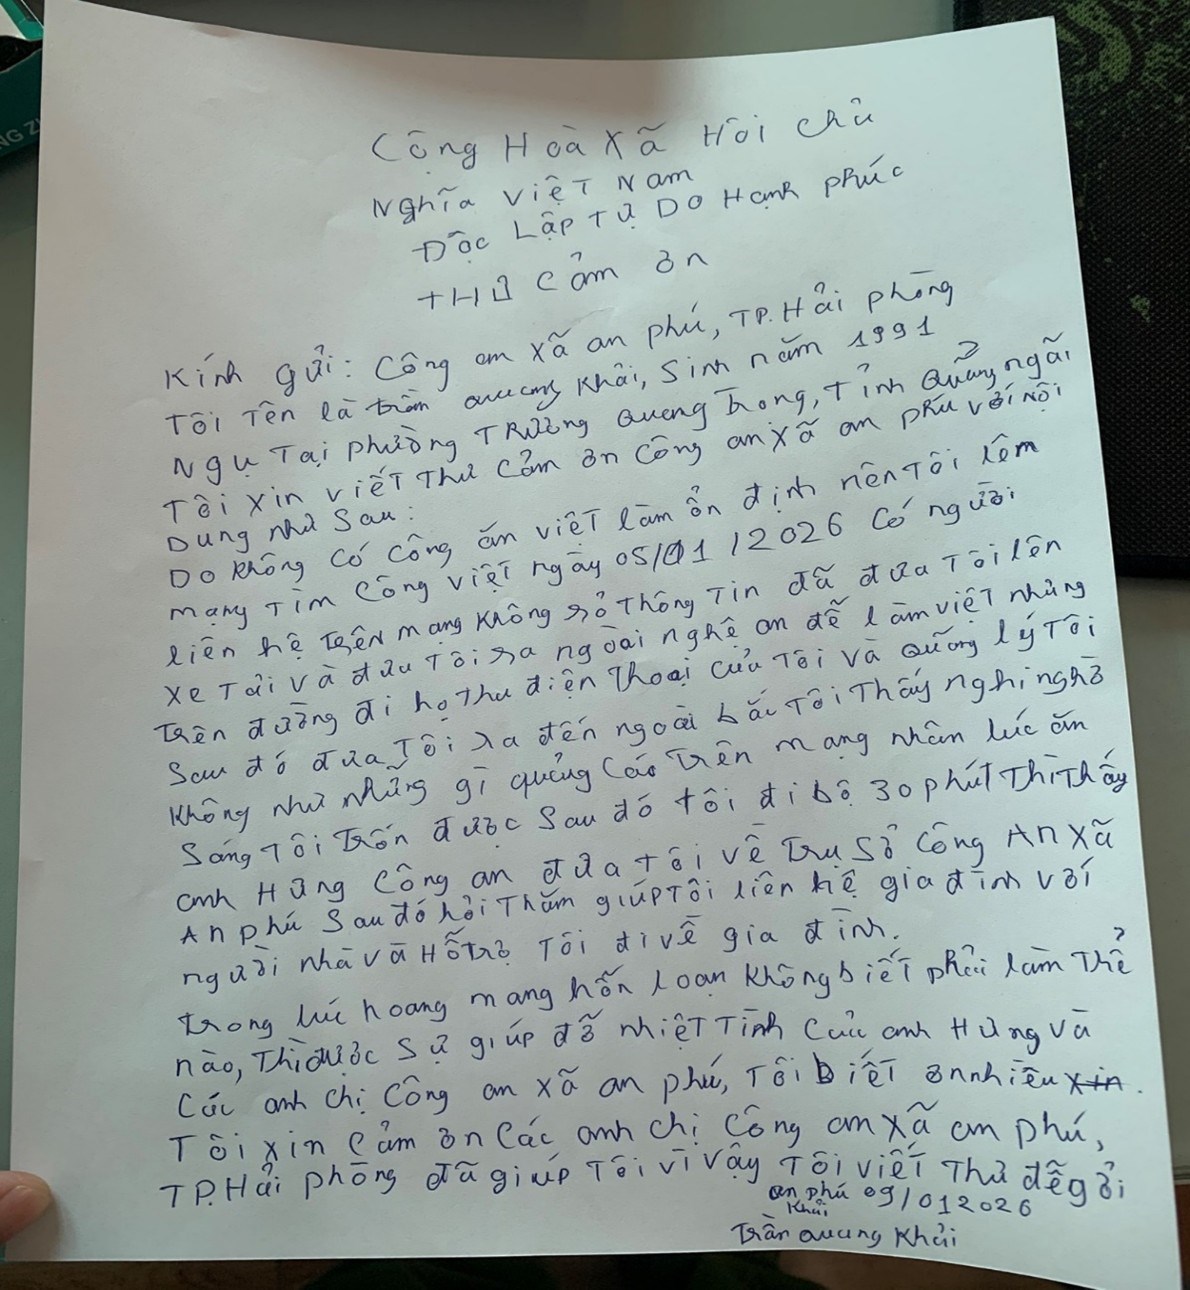 Cộng Hoà Xã Hội Chủ
Nghĩa Việt Nam
Độc Lập Tự Do Hạnh phúc
Thư Cảm ơn
Kính gửi: Công an xã an phú, TP. Hải phòng
Tôi Tên là trần quang Khải, Sinh năm 1991
Ngụ Tại phường Trương Quang Trọng, Tỉnh Quảng ngãi
Tôi xin viết Thư Cảm ơn Công an xã an phú với nội
Dung như Sau:
Do Không có công ăn việt làm ổn định nên Tôi lêm
mạng Tìm Công việt ngày 05/01/2026 Có người
liên hệ trên mạng không rỏ Thông Tin đã đưa Tôi lên
xe Tải và đưu Tôi ra ngoài nghê an để làm việt nhưng
trên đường đi họ thu điện Thoại cửu Tôi và quảng lý Tôi
Sau đó đưa Tôi ra đến ngoài bắc Tôi Thấy nghi nghờ
Không như những gì quảng Cáo Trên mạng nhân lúc ăn
Sáng Tôi trốn được Sau đó tôi đi bộ 30 phút Thì Thấy
anh Hưng Công an đưa tôi về Trụ Sở Công An Xã
An phú Sau đó hỏi Thăm giúp Tôi liên hệ gia đình với
người nhà và Hỗ trợ Tôi đi về gia đình.
trong lúc hoang mang hỗn loạn Không biết phải làm Thể
nào, Thì được Sự giúp đỡ nhiệt Tình Cửu anh Hưng và
Các anh chị Công an xã an phú, Tôi biết ơn nhiều xin.
Tôi xin Cảm ơn Các anh chị Công an xã an phú,
TP. Hải phòng đã giúp Tôi vì vậy Tôi viết Thư để gởi
an phú 09/01 2026
Khải
Trần Quang Khải